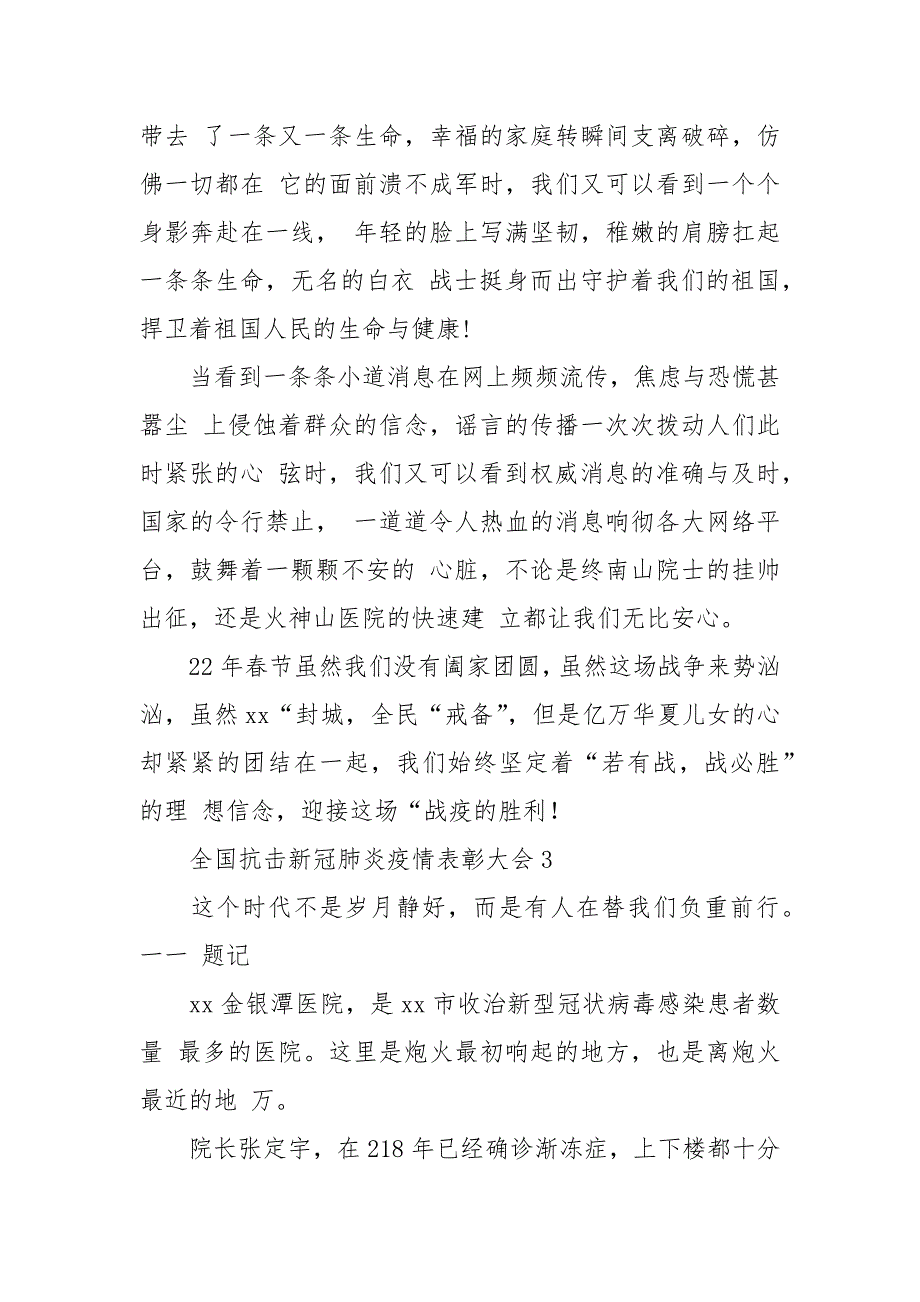 带去 了一条又一条生命，幸福的家庭转瞬间支离破碎，仿
佛一切都在 它的面前溃不成军时，我们又可以看到一个个
身影奔赴在一线， 年轻的脸上写满坚韧，稚嫩的肩膀扛起
一条条生命，无名的白衣 战士挺身而出守护着我们的祖国，
捍卫着祖国人民的生命与健康!
当看到一条条小道消息在网上频频流传，焦虑与恐慌甚
嚣尘 上侵蚀着群众的信念，谣言的传播一次次拨动人们此
时紧张的心 弦时，我们又可以看到权威消息的准确与及时，
国家的令行禁止， 一道道令人热血的消息响彻各大网络平
台，鼓舞着一颗颗不安的 心脏，不论是终南山院士的挂帅
出征，还是火神山医院的快速建 立都让我们无比安心。
22 年春节虽然我们没有阖家团圆，虽然这场战争来势汹
汹，虽然 xx“封城，全民“戒备”，但是亿万华夏儿女的心
却紧紧的团结在一起，我们始终坚定着“若有战，战必胜”
的理 想信念，迎接这场“战疫的胜利！
全国抗击新冠肺炎疫情表彰大会 3
这个时代不是岁月静好，而是有人在替我们负重前行。
一一 题记
xx 金银潭医院，是 xx 市收治新型冠状病毒感染患者数
量 最多的医院。这里是炮火最初响起的地方，也是离炮火
最近的地 万。
院长张定宇，在 218 年已经确诊渐冻症，上下楼都十分